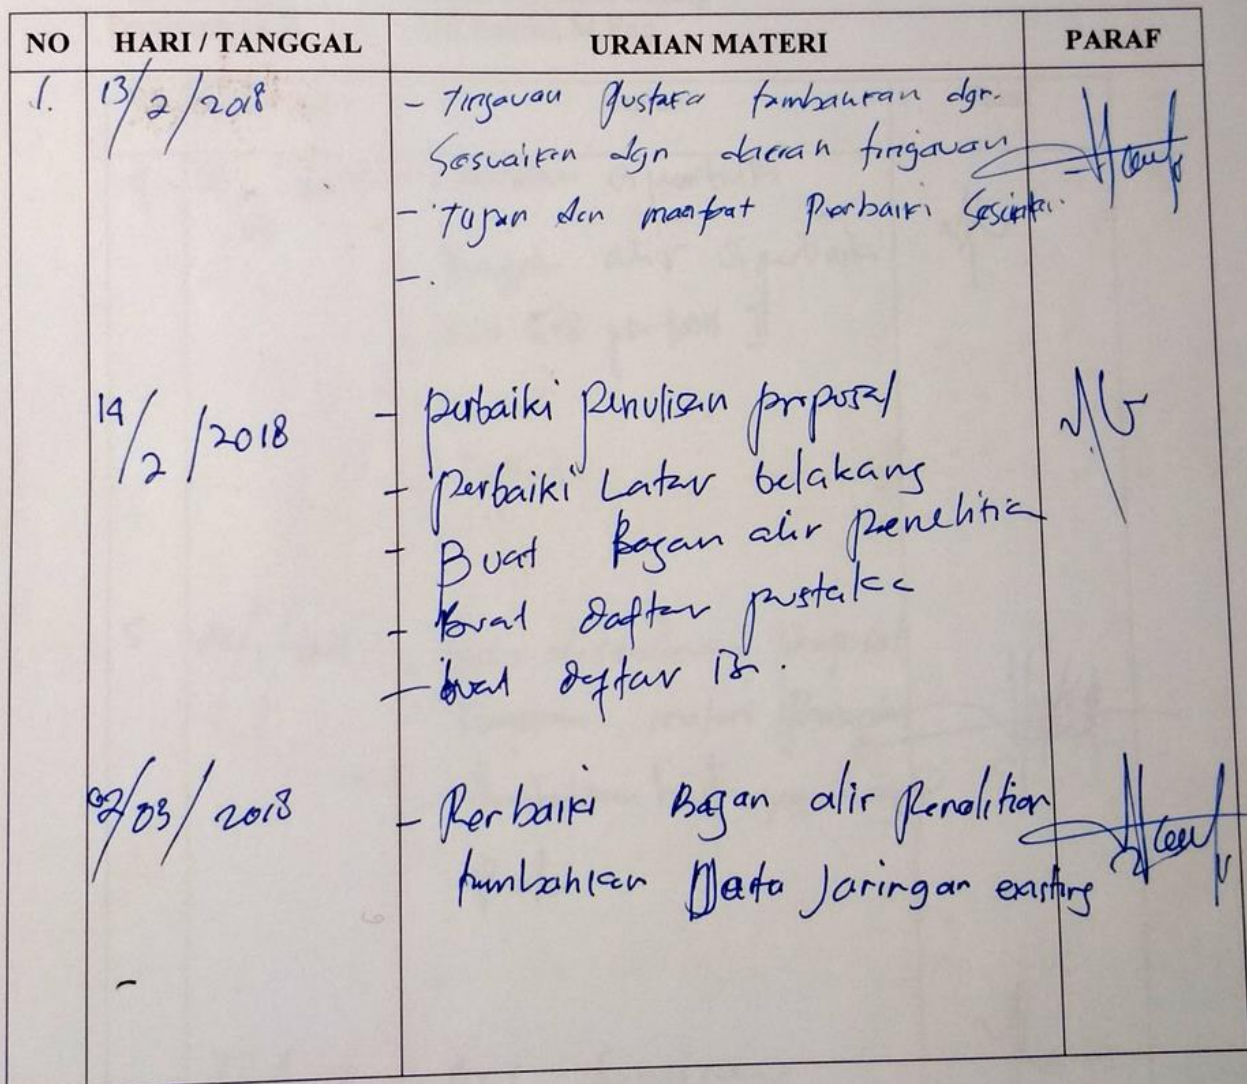 NO HARI / TANGGAL URAIAN MATERI PARAF
1. 13/2/2018 - Tinjauan Pustaka tambahkan dgn.
Sesuaikan dgn daerah tinjauan
- Tujuan dan manfaat Perbaiki
- .
14/2/2018 - perbaiki penulisan proposal
- perbaiki Latar belakang
- Buat Bagan alir Penelitian
- Buat daftar pustaka
- buat daftar isi.
02/03/2018 - Perbaiki Bagan alir Penelitian
tambahkan Data Jaringan existing
-